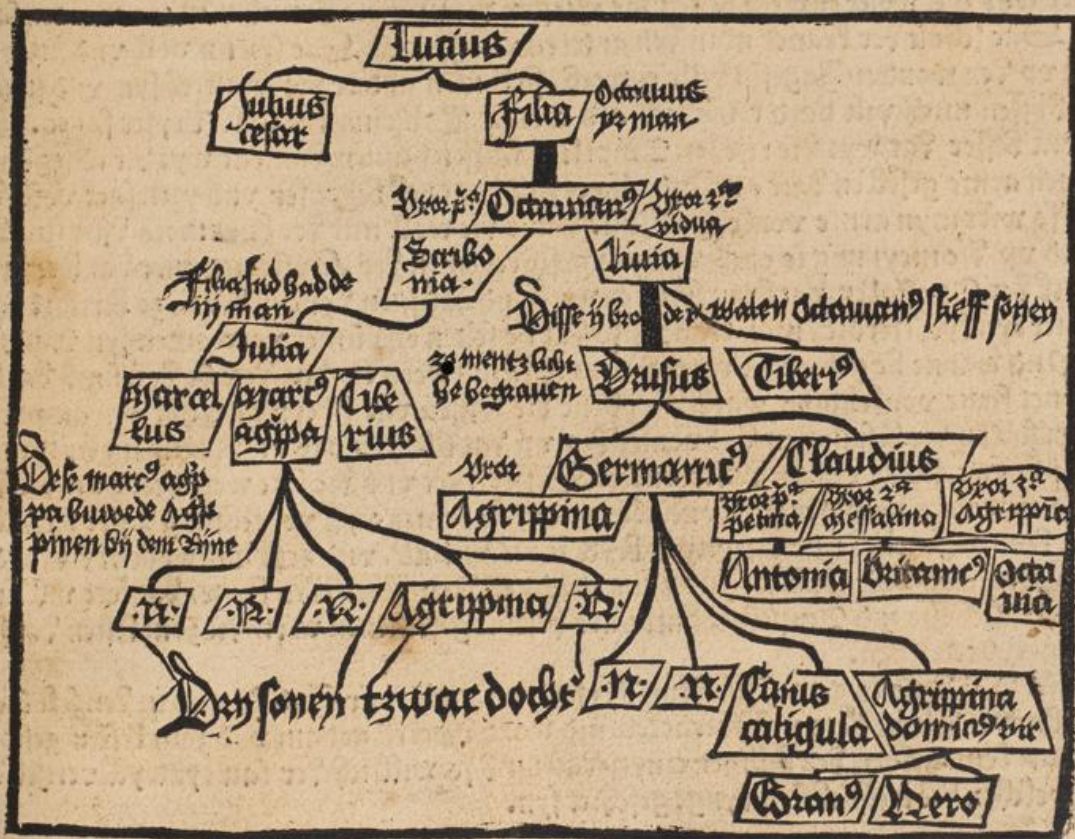 Lucius
Julius
cesar
Filia
Octauius
yr man
Vror p̄ᵃ
Octauianꝰ
Vror 2ᵃ
vidua
Scribo
nia.
Liuia
Filia Ind hadde
iij man
Disse ij broder waren Octauianꝰ stieff sonen
Julia
zo mentz licht
he begrauen
Drusus
Tiberiꝰ
Marcel
lus
Marcꝰ
agͥppa
Tibe
rius
Dese marcꝰ agͥp
pa buwede Agͥp
pinen bij dem Rijne
Vror
Germanicꝰ
Claudius
Agrippina
Vror p̄ᵃ
petina
Vror 2ᵃ
Messalina
Vror 3ᵃ
Agrippīa
Antonia
Britanicꝰ
Octa
uia
.N.
.N.
.N.
Agrippina
.N.
Dry sonen tzwae docht
.N.
.N.
Caius
caligula
Agrippina
domiciꝰ vir
Nero